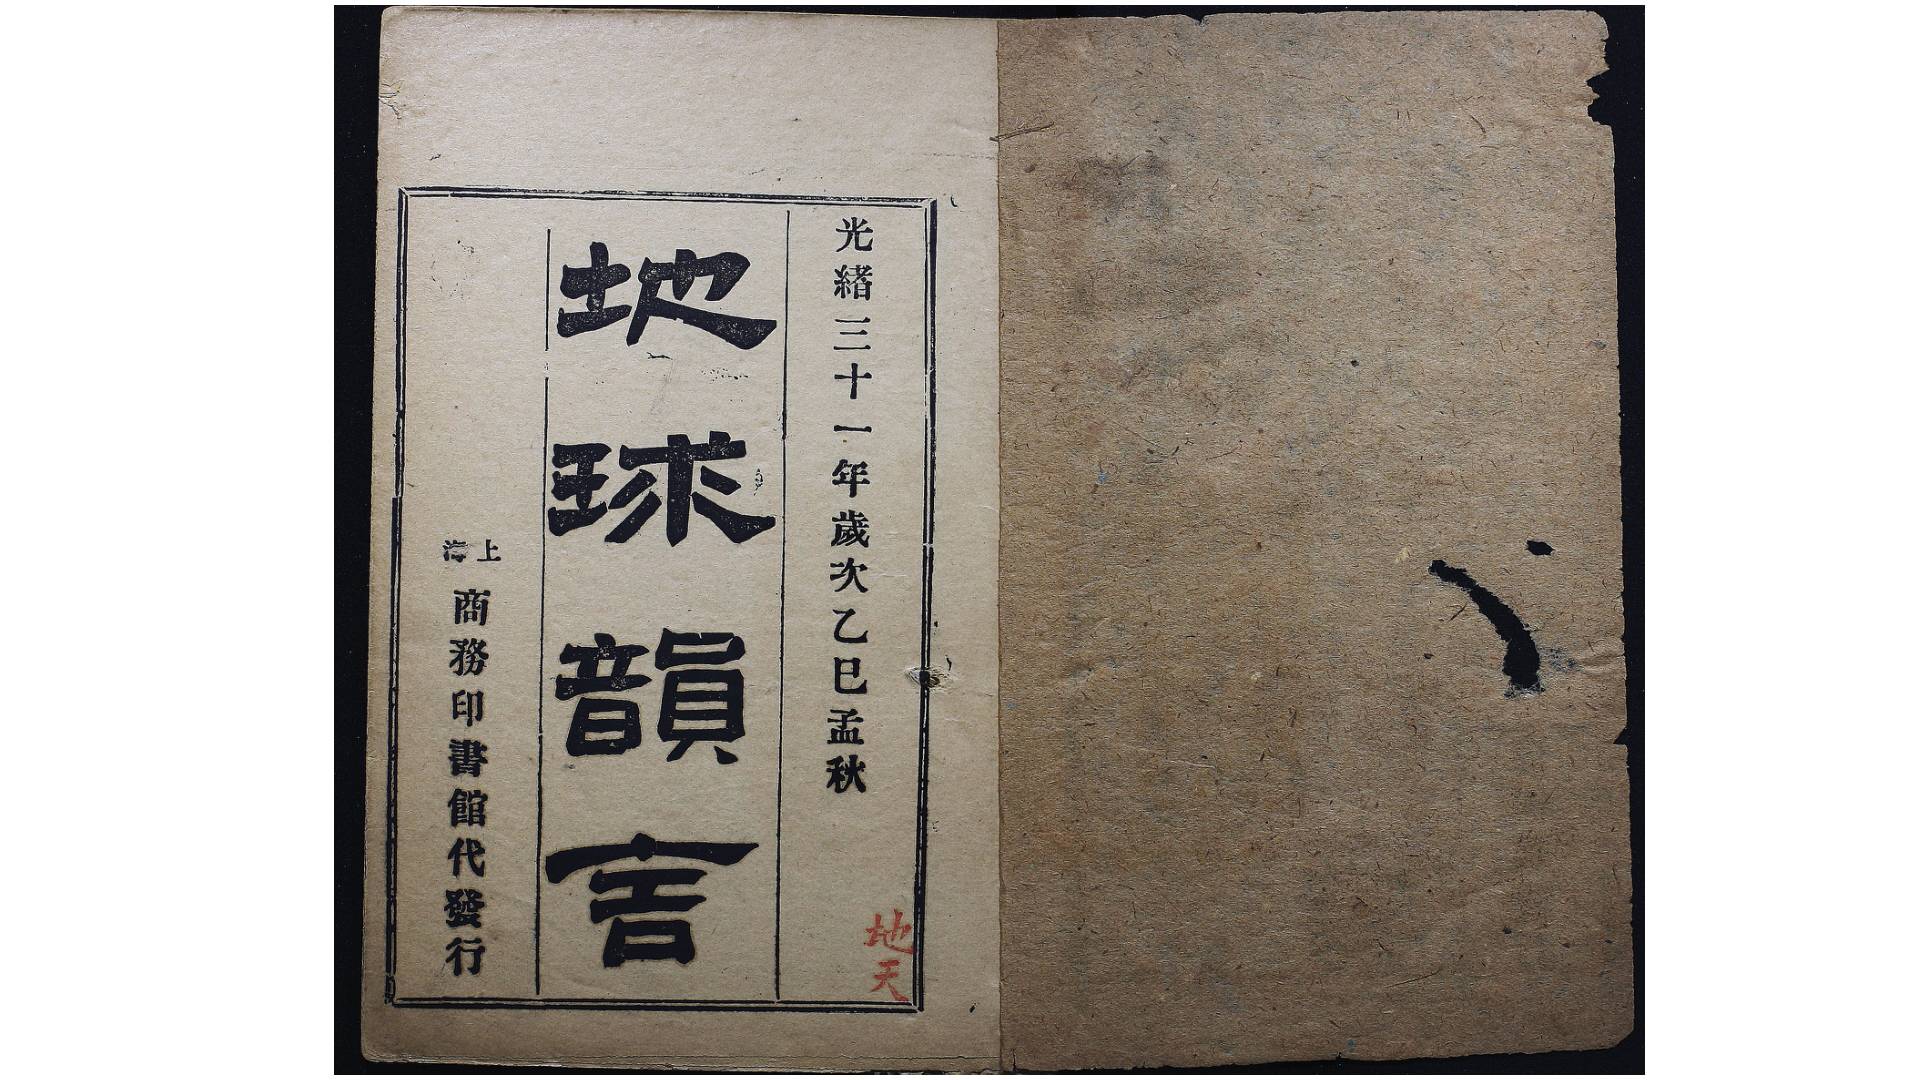 光緒三十一年歲次乙巳孟秋
地天
地球韻言
上海
商務印書館代發行